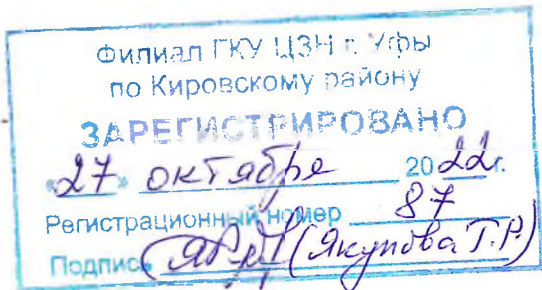 Филиал ГКУ ЦЗН г. Уфы
по Кировскому району
ЗАРЕГИСТРИРОВАНО
«27» октября 2022г.
Регистрационный номер 87
Подпись (Якупова Т.Р.)